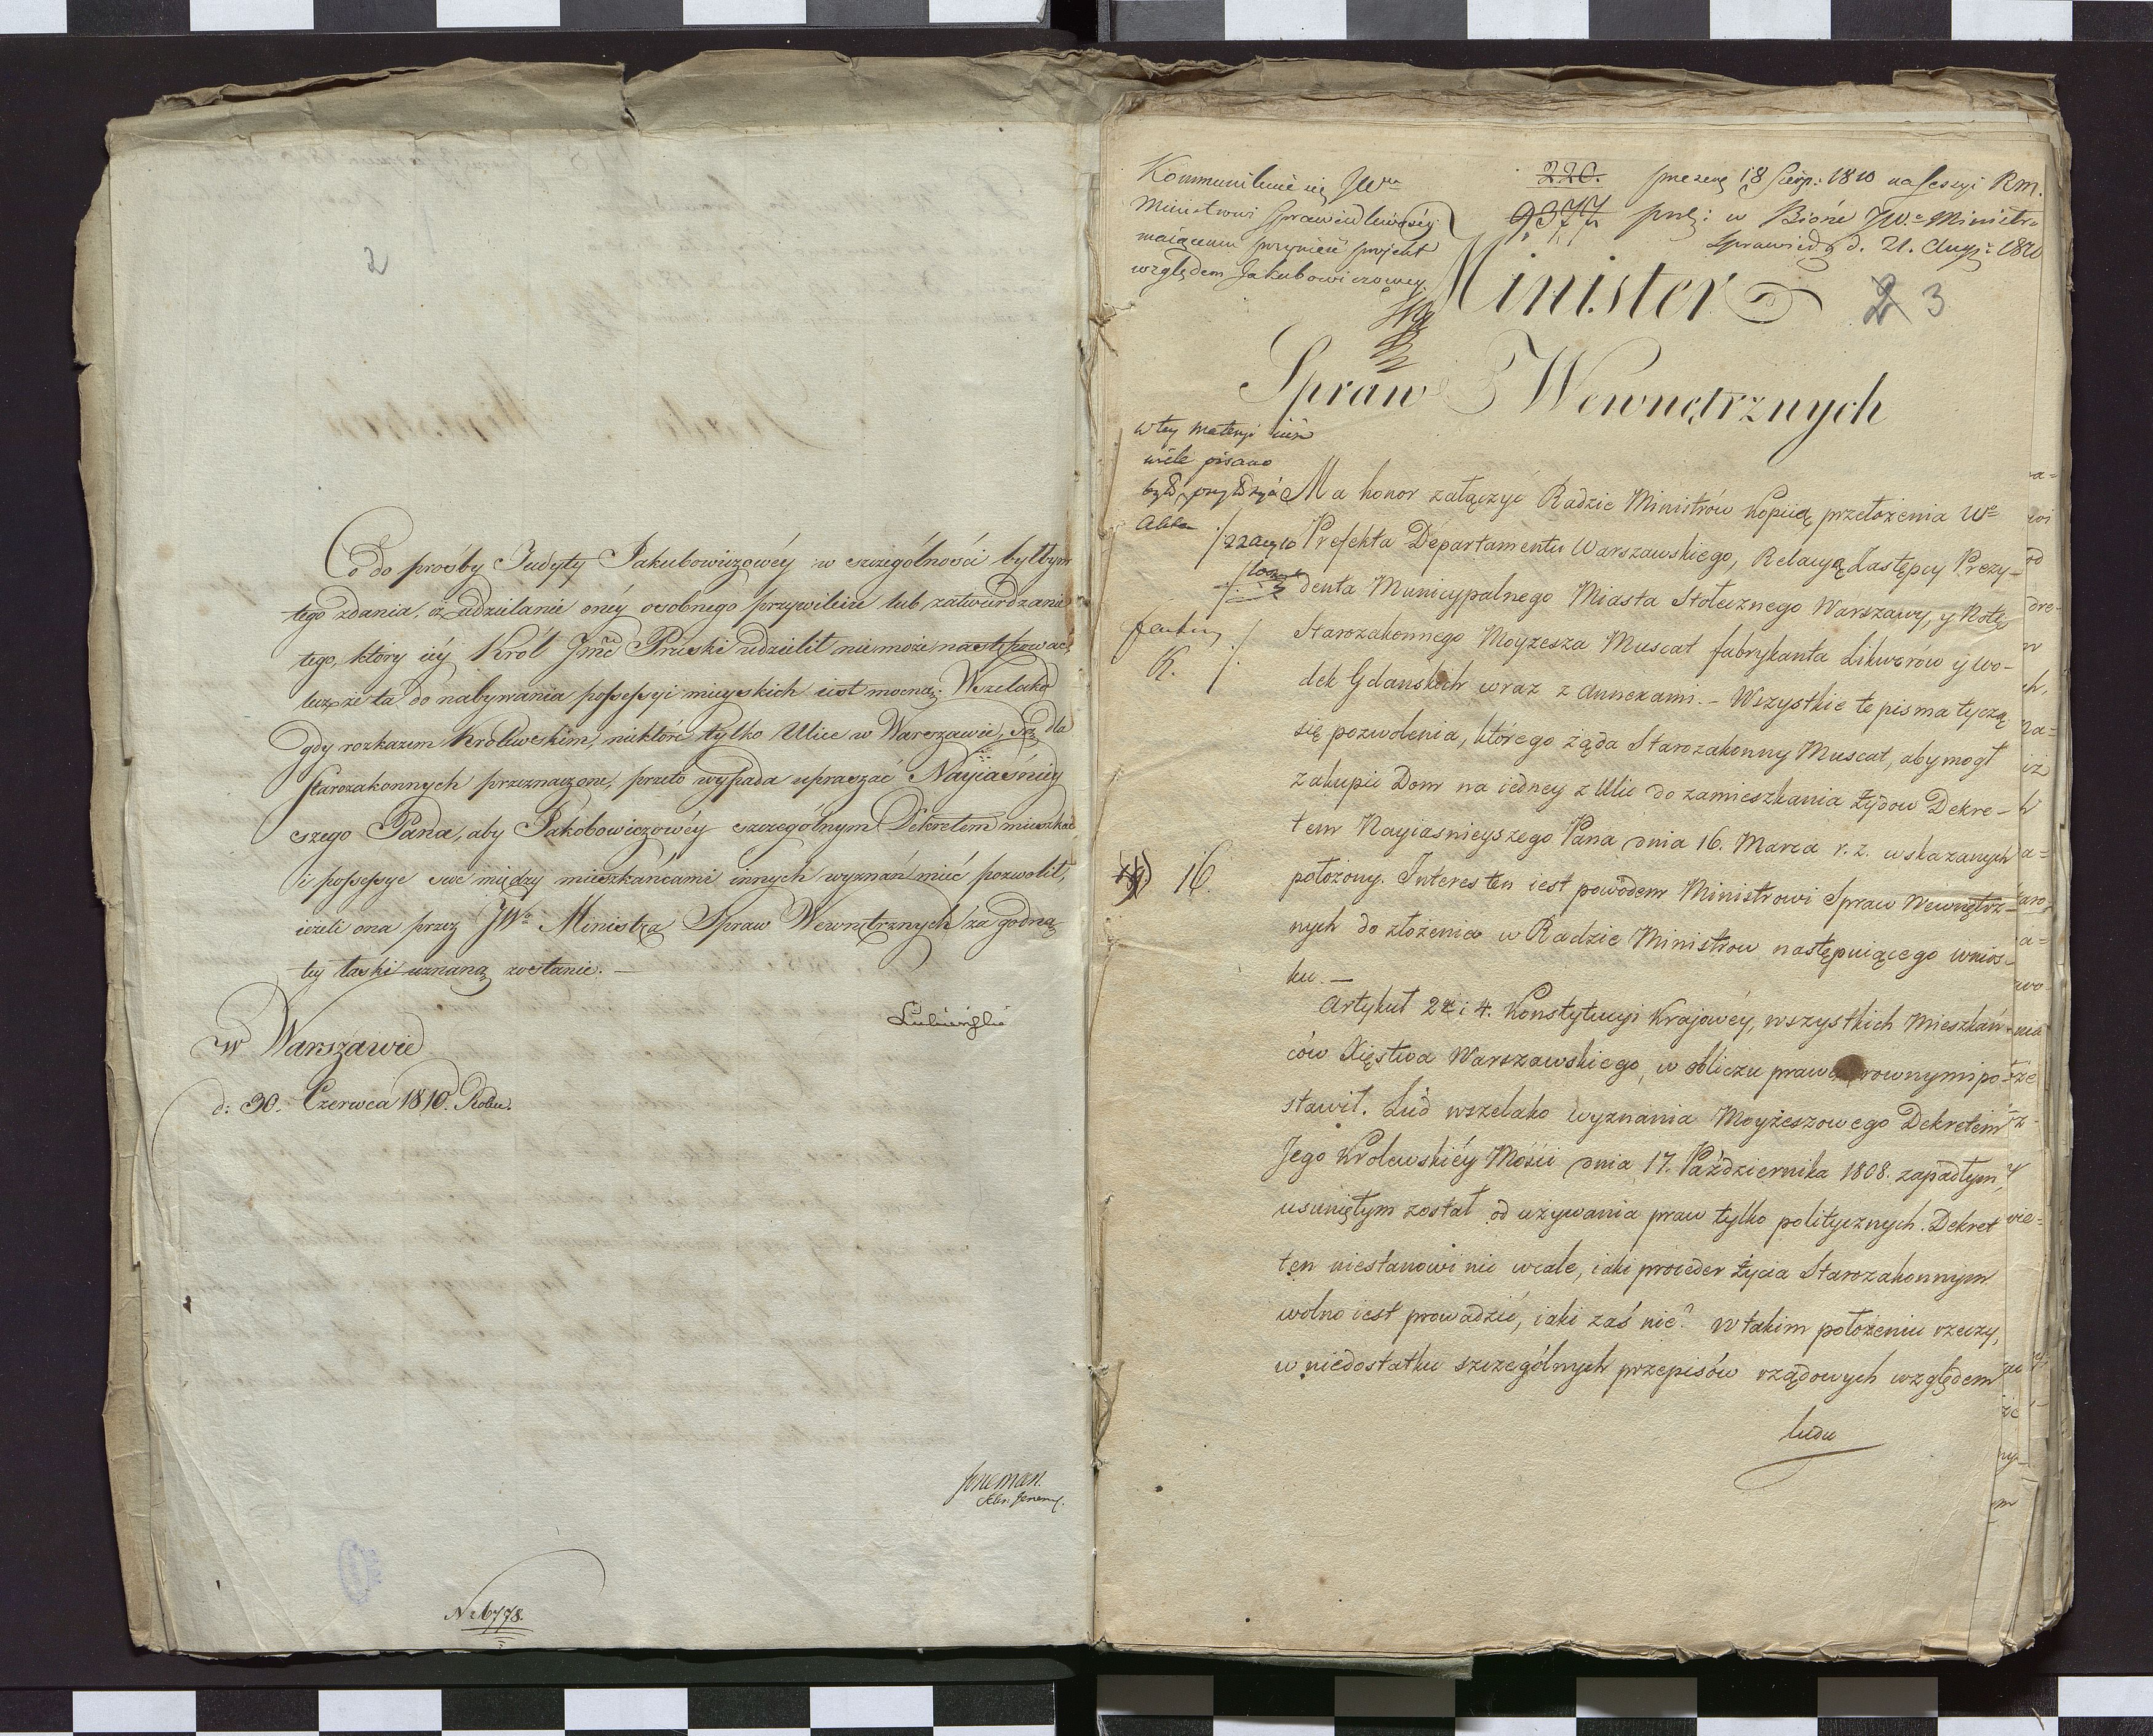 2
Co do prośby Judyty Jakubowiczowéy w szczególności byłbym
tego zdania, iż udzielanie onéy osobnego przywileiu lub zatwierdzanie
tego, który iéy Król Jmć Pruski udzielił nie może następować
lecz że ta do nabywania possessyi mieyskich iest mocną; Wszelako
gdy rozkazem Królewskim, niektóre tylko Ulice w Warszawie, są dla
starozakonnych przeznaczone, przeto wypada upraszać Nayiaśniey
szego Pana, aby Jakobowiczowéy szczególnym Dekretem mieszkać
i possessye swe między mieszkańcami innych wyznań mieć pozwolił,
ieżeli ona przez JWo Ministra Spraw Wewnętrznych za godną
tey łaski uznaną zostanie. —
Łubieński
w Warszawie
d: 30. Czerwca 1810. Roku.
Nr 6778.
Kommunikuie się JWu
Ministrowi Sprawiedliwości
maiącemu przynieść projekt
względem Jakubowiczowey
220. prezen 18 Sierp: 1810 na Sessyi R.M.
9377 prd: w Biórze JWo Ministra
Sprawied. d. 21. Aug: 1810
Minister
2 3
Spraw Wewnętrznych
w tey materyi iuż
wiele pisano
Akta
Ma honor załączyć Radzie Ministrów kopiią przełożenia Wo
Prefekta Departamentu Warszawskiego, Relacyą Zastępcy Prezy-
denta Municypalnego Miasta Stołecznego Warszawy, y Notę
Starozakonnego Moyżesza Muscat fabrykanta Likworów y wo-
dek Gdanskich wraz z Annexami. – Wszystkie te pisma tyczą
się pozwolenia, którego żąda Starozakonny Muscat, aby mogł
zakupić Dom na iedney z Ulic do zamieszkania Żydow Dekre-
tem Nayiasnieyszego Pana dnia 16. Marca r. z. wskazanych
16.
położony. Interes ten iest powodem Ministrowi Spraw Wewnętrz-
nych do złożenia w Radzie Ministrow następuiącego wnios-
ku. —
Artykuł 2 i 4. Konstytucyi Krajowéy, wszystkich Mieszkań-
ców Xięstwa Warszawskiego, w obliczu prawa rownymi po-
stawił. Lud wszelako wyznania Moyżeszowego Dekretem
Jego Krolewskiéy Mości dnia 17. Października 1808. zapadłym,
usuniętym został od używania praw tylko politycznych. Dekret
ten niestanowi nic wcale, iaki proceder życia Starozakonnym
wolno iest prowadzić, iaki zaś nie? W takim położeniu rzeczy,
w niedostatku szczególnych przepisów rządowych względem
ludu